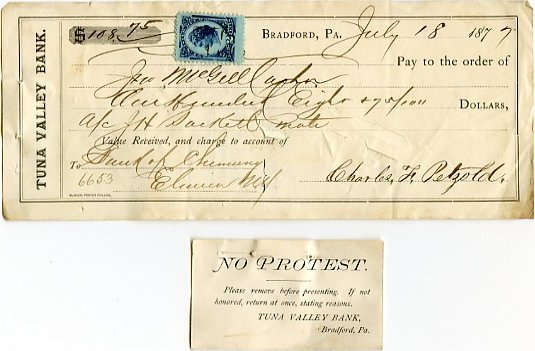 TUNA VALLEY BANK.
$108.75
BRADFORD, PA. July 18 1877
Pay to the order of
Jno McGill Cashr
One Hundred Eight & 75/100 DOLLARS,
a/c J H Sackett note
Value Received, and charge to account of
To Bank of Chemung
6653 Elmira NY Charles F. Petzold.
NO PROTEST.
Please remove before presenting. If not
honored, return at once, stating reasons.
TUNA VALLEY BANK,
Bradford, Pa.